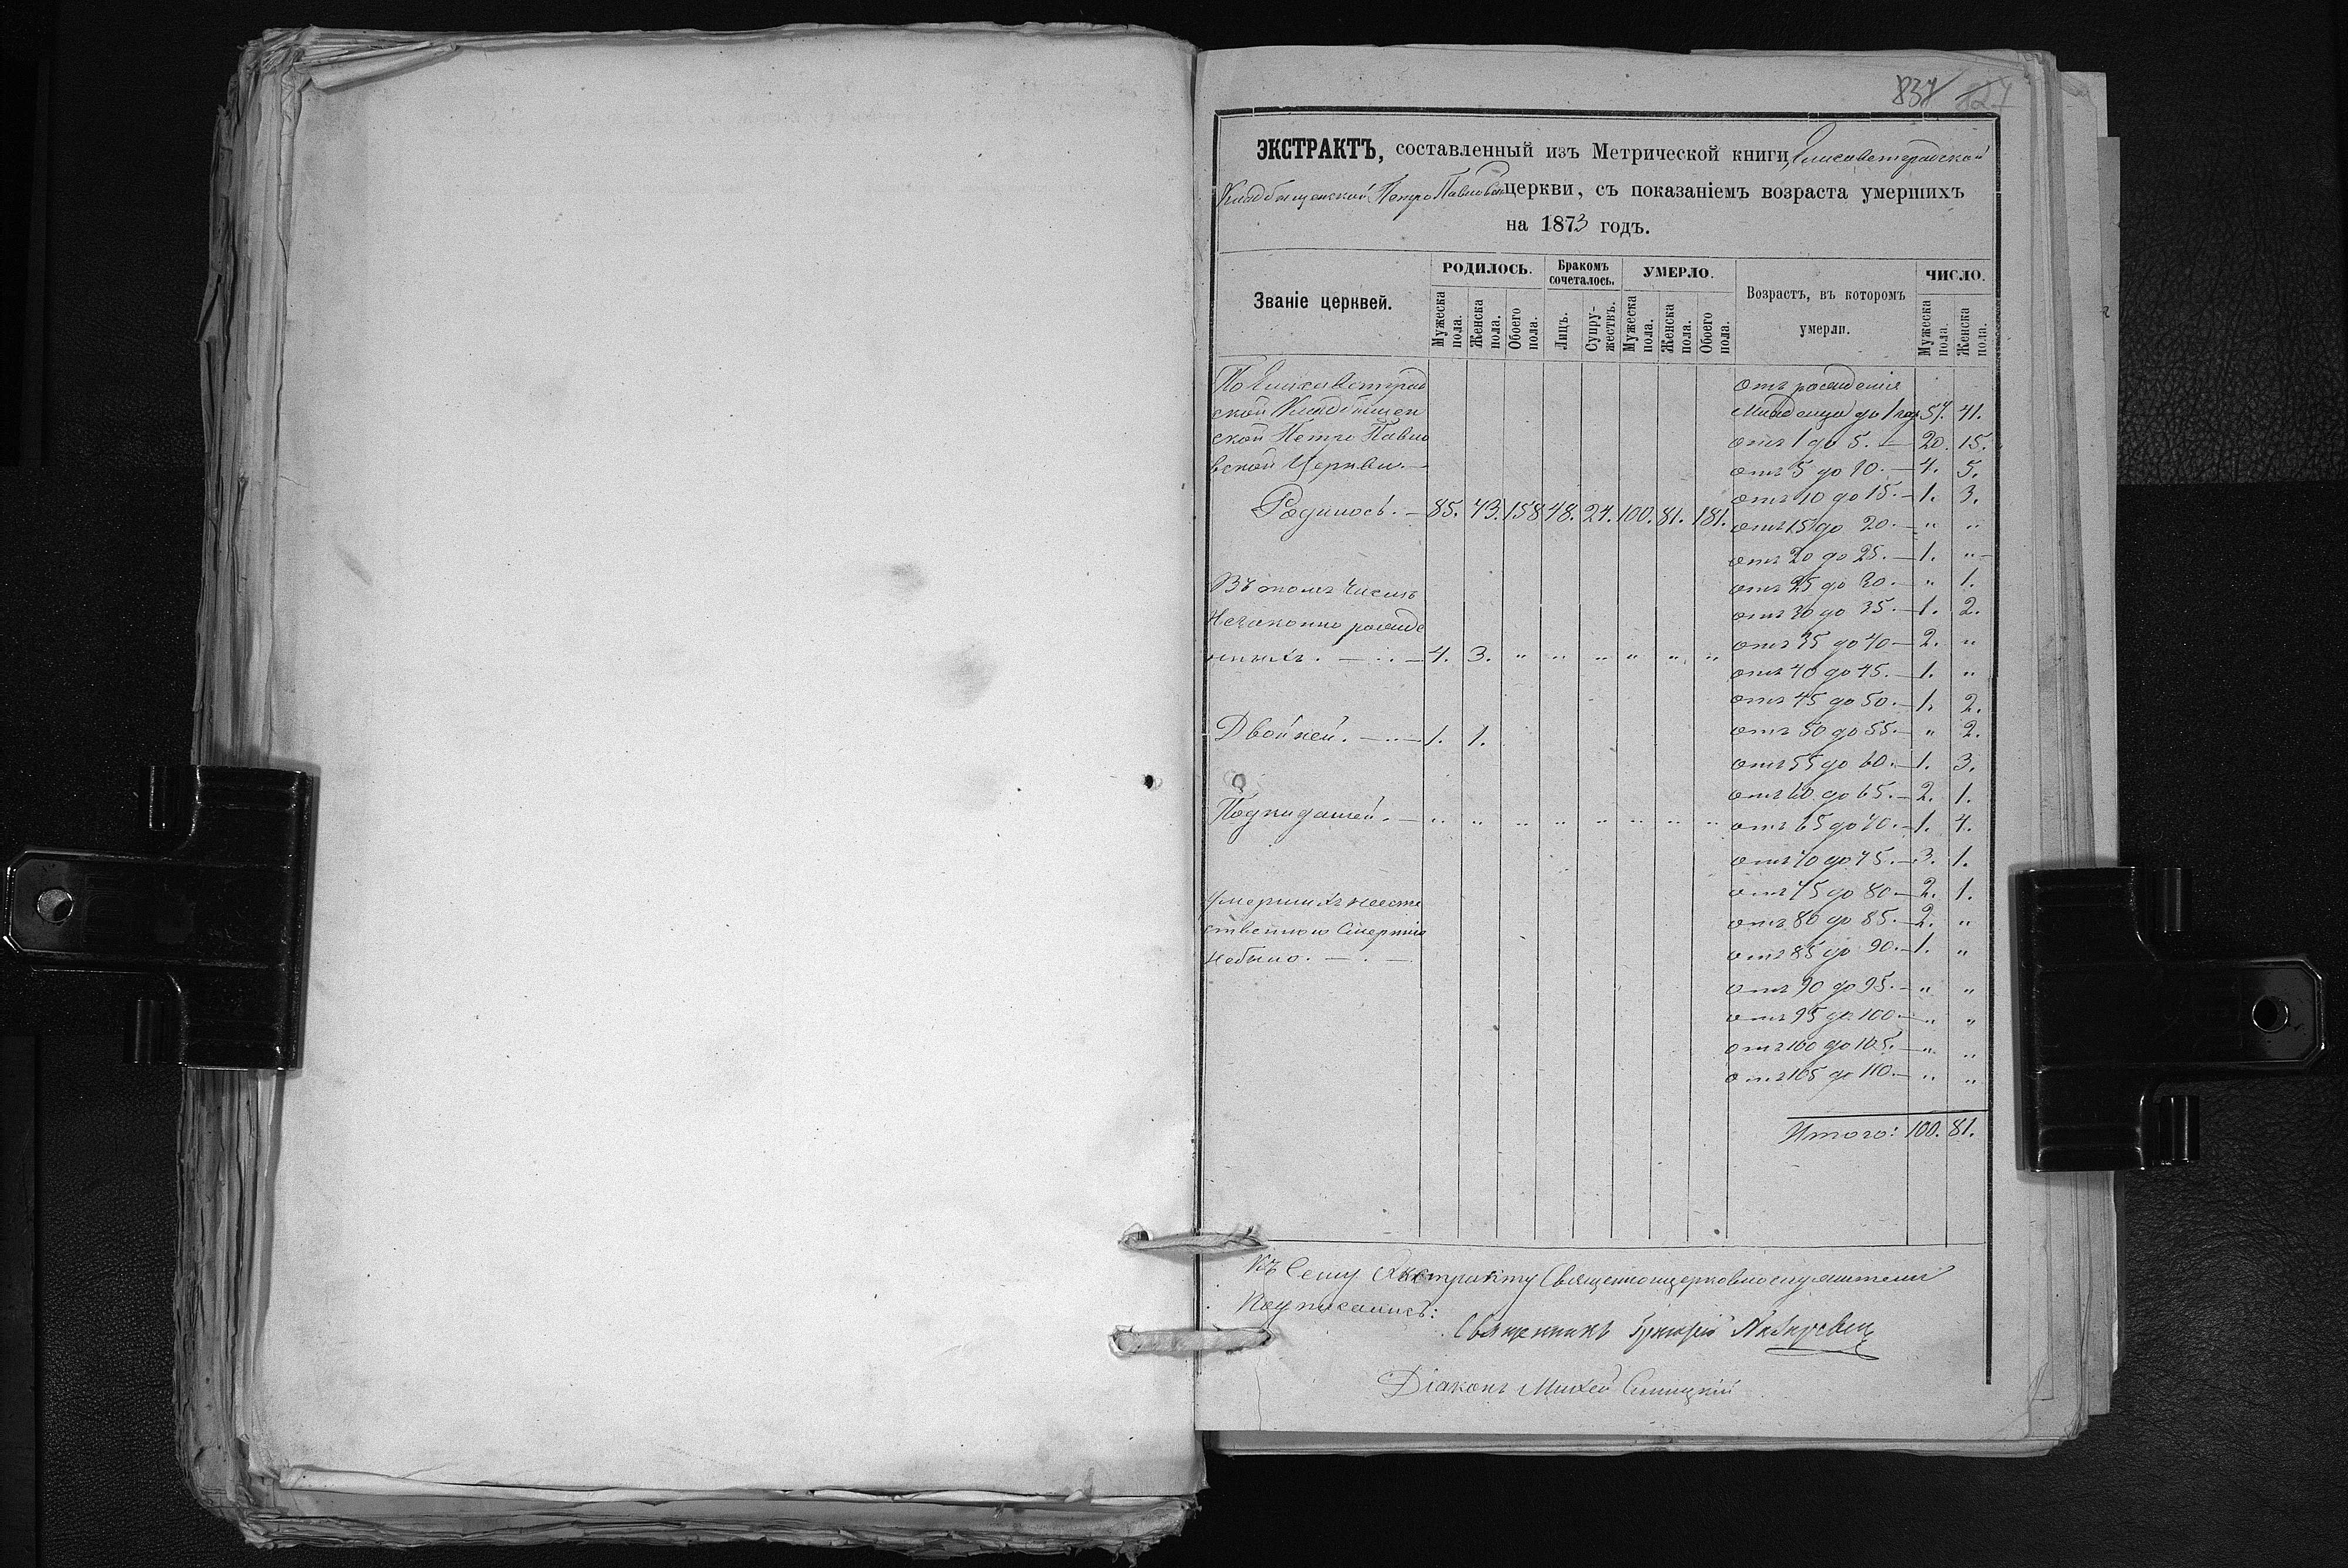 837 827
ЭКСТРАКТЪ, составленный изъ Метрической книги Елисаветградской
Кладбищенской Петро Павловской церкви, съ показаніемъ возраста умершихъ
на 1873 годъ.
Званіе церквей.
РОДИЛОСЬ.
Бракомъ сочеталось.
УМЕРЛО.
Возрастъ, въ которомъ умерли.
ЧИСЛО.
Мужеска пола.
Женска пола.
Обоего пола.
Лицъ.
Супружествъ.
Мужеска пола.
Женска пола.
Обоего пола.
Мужеска пола.
Женска пола.
По Елисаветград
ской Кладбищен
ской Петро Павло
вской Церкви. —
Родилось. — 85. 73. 158 48. 24. 100. 81. 181.
Въ томъ Числѣ
Незаконно рожде
нныхъ. — 4. 3. " " " " " "
Двойней. — 1. 1.
Подкидышей. — " " " " " " " "
Умершихъ неесте
ственною Смертію
небыло. —
Отъ рожденія
Младенца до 1 год 57. 41.
отъ 1 до 5. — 20. 15.
отъ 5 до 10. — 4. 5.
отъ 10 до 15. — 1. 3.
отъ 15 до 20. — " "
отъ 20 до 25. — 1. "
отъ 25 до 30. — " 1.
отъ 30 до 35. — 1. 2.
отъ 35 до 40 — 2. "
отъ 40 до 45. — 1. "
отъ 45 до 50. — 1. 2.
отъ 50 до 55. — " 2.
отъ 55 до 60. — 1. 3.
отъ 60 до 65. — 2. 1.
отъ 65 до 70. — 1. 4.
отъ 70 до 75. — 3. 1.
отъ 75 до 80 — 2. 1.
отъ 80 до 85. — 2. "
отъ 85 до 90. — 1. "
отъ 90 до 95. — " "
отъ 95 до 100 — " "
отъ 100 до 105. — " "
отъ 105 до 110. — " "
Итого: 100. 81.
Къ Сему Экстракту Священноцерковнослужители
Подписались:
Священникъ Григорій
Діаконъ Михей Синицкій